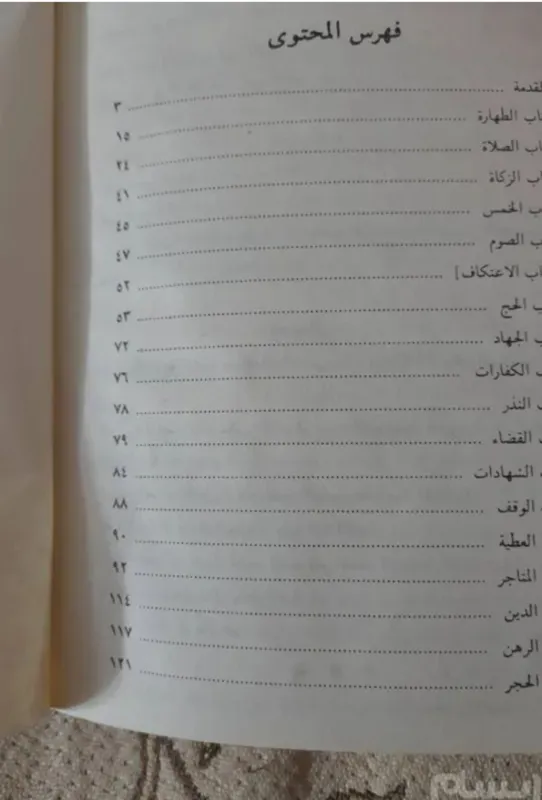 فهرس المحتوى
لقدمة ........ ٣
اب الطهارة ........ ١٥
اب الصلاة ........ ٢٤
اب الزكاة ........ ٤١
ب الخمس ........ ٤٥
ب الصوم ........ ٤٧
اب الاعتكاف] ........ ٥٢
ب الحج ........ ٥٣
ب الجهاد ........ ٧٢
ب الكفارات ........ ٧٦
ب النذر ........ ٧٨
ب القضاء ........ ٧٩
الشهادات ........ ٨٤
الوقف ........ ٨٨
العطية ........ ٩٠
المتاجر ........ ٩٢
الدين ........ ١١٤
الرهن ........ ١١٧
الحجر ........ ١٢١